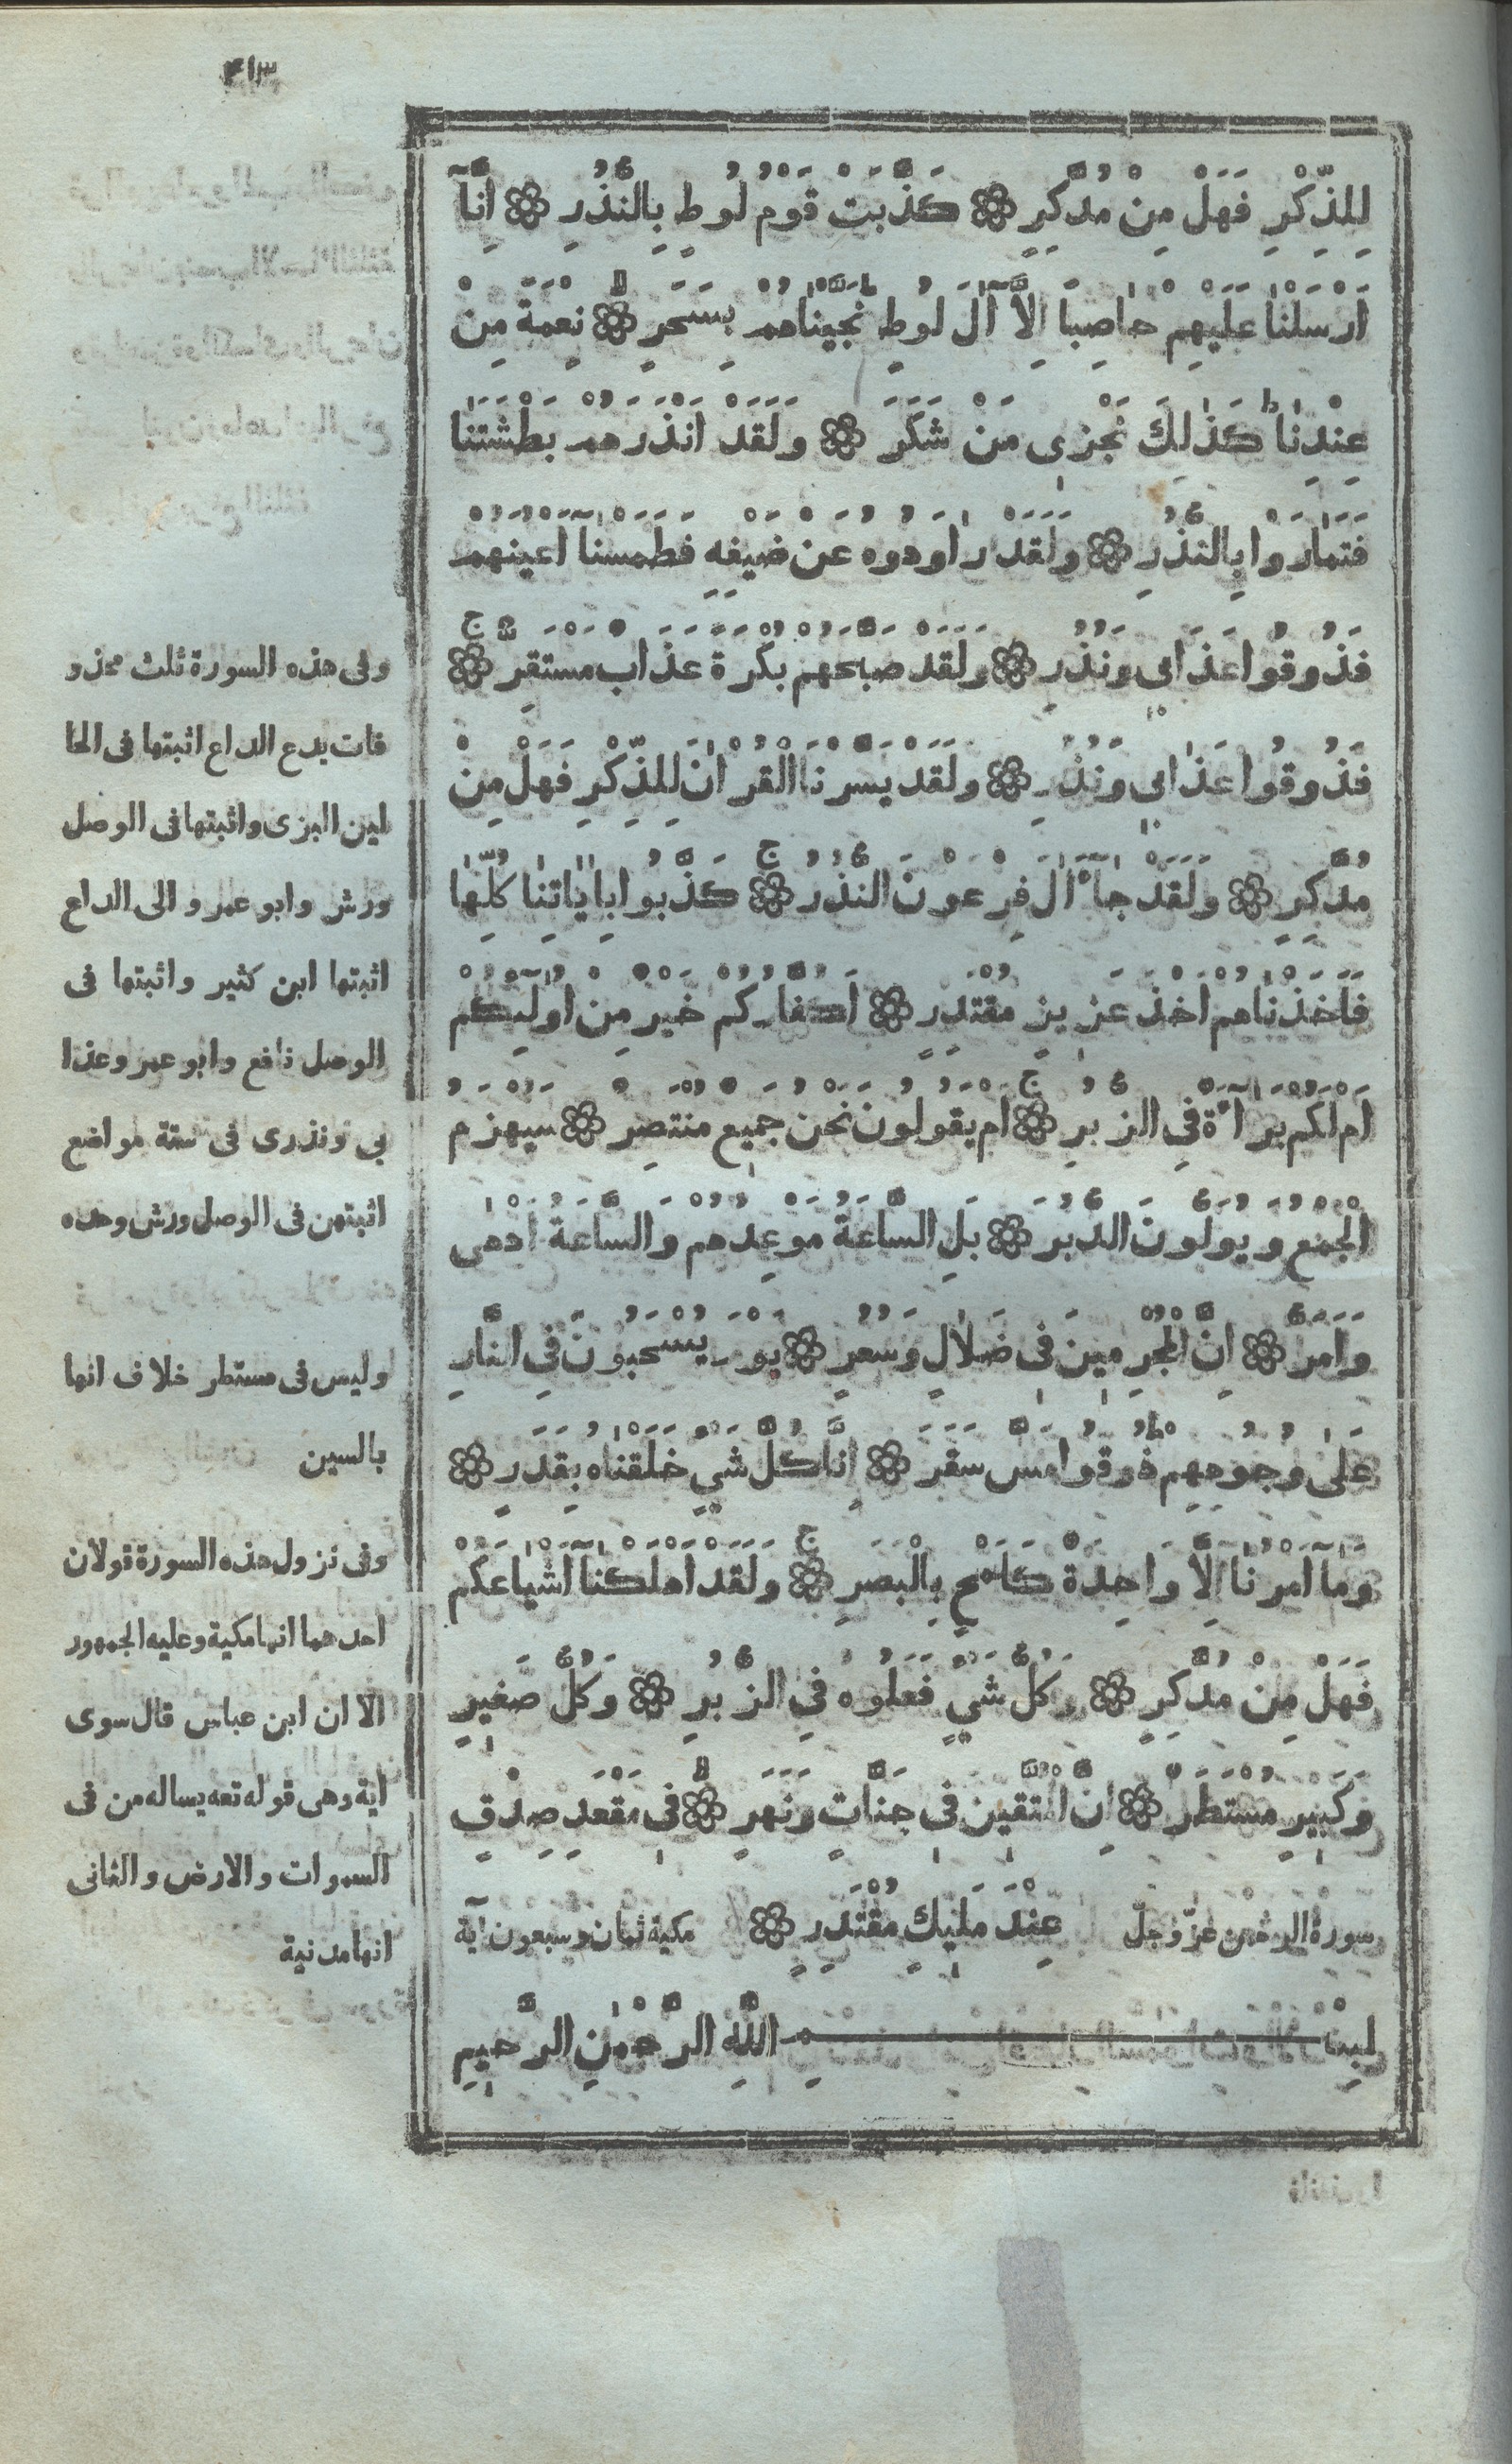 ٤١٣
لِلذِّكْرِ فَهَلْ مِنْ مُدَّكِرٍ ۞ كَذَّبَتْ قَوْمُ لُوطٍ بِالنُّذُرِ ۞ اِنَّآ
اَرْسَلْنَا عَلَيْهِمْ حَاصِبًا اِلَّآ اٰلَ لُوطٍ نَجَّيْنَاهُمْ بِسَحَرٍ ۞ نِعْمَةً مِنْ
عِنْدِنَا كَذٰلِكَ نَجْزِى مَنْ شَكَرَ ۞ وَلَقَدْ اَنْذَرَهُمْ بَطْشَتَنَا
فَتَمَارَوْا بِالنُّذُرِ ۞ وَلَقَدْ رَاوَدُوهُ عَنْ ضَيْفِهِ فَطَمَسْنَآ اَعْيُنَهُمْ
فَذُوقُوا عَذَابِى وَنُذُرِ ۞ وَلَقَدْ صَبَّحَهُمْ بُكْرَةً عَذَابٌ مُسْتَقِرٌّ ج ۞
فَذُوقُوا عَذَابِى وَنُذُرِ ۞ وَلَقَدْ يَسَّرْنَا الْقُرْاٰنَ لِلذِّكْرِ فَهَلْ مِنْ
مُدَّكِرٍ ۞ وَلَقَدْ جَآءَ اٰلَ فِرْعَوْنَ النُّذُرُ ج ۞ كَذَّبُوا بِاٰيَاتِنَا كُلِّهَا
فَاَخَذْنَاهُمْ اَخْذَ عَزِيزٍ مُقْتَدِرٍ ۞ اَكُفَّارُكُمْ خَيْرٌ مِنْ اُولٰٓئِكُمْ
اَمْ لَكُمْ بَرَآءَةٌ فِى الزُّبُرِ ج ۞ اَمْ يَقُولُونَ نَحْنُ جَمِيعٌ مُنْتَصِرٌ ۞ سَيُهْزَمُ
الْجَمْعُ وَيُوَلُّونَ الدُّبُرَ ۞ بَلِ السَّاعَةُ مَوْعِدُهُمْ وَالسَّاعَةُ اَدْهٰى
وَاَمَرُّ ۞ اِنَّ الْمُجْرِمِينَ فِى ضَلَالٍ وَسُعُرٍ ۞ يَوْمَ يُسْحَبُونَ فِى النَّارِ
عَلٰى وُجُوهِهِمْ ط ذُوقُوا مَسَّ سَقَرَ ۞ اِنَّا كُلَّ شَىْءٍ خَلَقْنَاهُ بِقَدَرٍ ۞
وَمَآ اَمْرُنَا اِلَّا وَاحِدَةٌ كَلَمْحٍ بِالْبَصَرِ ج ۞ وَلَقَدْ اَهْلَكْنَآ اَشْيَاعَكُمْ
فَهَلْ مِنْ مُدَّكِرٍ ۞ وَكُلُّ شَىْءٍ فَعَلُوهُ فِى الزُّبُرِ ۞ وَكُلُّ صَغِيرٍ
وَكَبِيرٍ مُسْتَطَرٌ ۞ اِنَّ الْمُتَّقِينَ فِى جَنَّاتٍ وَنَهَرٍ ۞ فِى مَقْعَدِ صِدْقٍ
عِنْدَ مَلِيكٍ مُقْتَدِرٍ ۞
سورة الرحمن عزّ وجلّ
مكية ثمان وسبعون اٰية
بِسْمِ اللّٰهِ الرَّحْمٰنِ الرَّحِيمِ
وفى هذه السورة ثلث محذو
فات يدع الداع اثبتها فى الحا
لين البزى واثبتها فى الوصل
ورش وابو عمرو والى الداع
اثبتها ابن كثير واثبتها فى
الوصل نافع وابو عمر وعذا
بى ونذرى فى ستة مواضع
اثبتهن فى الوصل ورش وحده
وليس فى مستطر خلاف انها
بالسين
وفى نزول هذه السورة قولان
احدهما انها مكية وعليه الجمهور
الا ان ابن عباس قال سوى
اية وهى قوله تعه يساله من فى
السموات والارض والثانى
انها مدنية